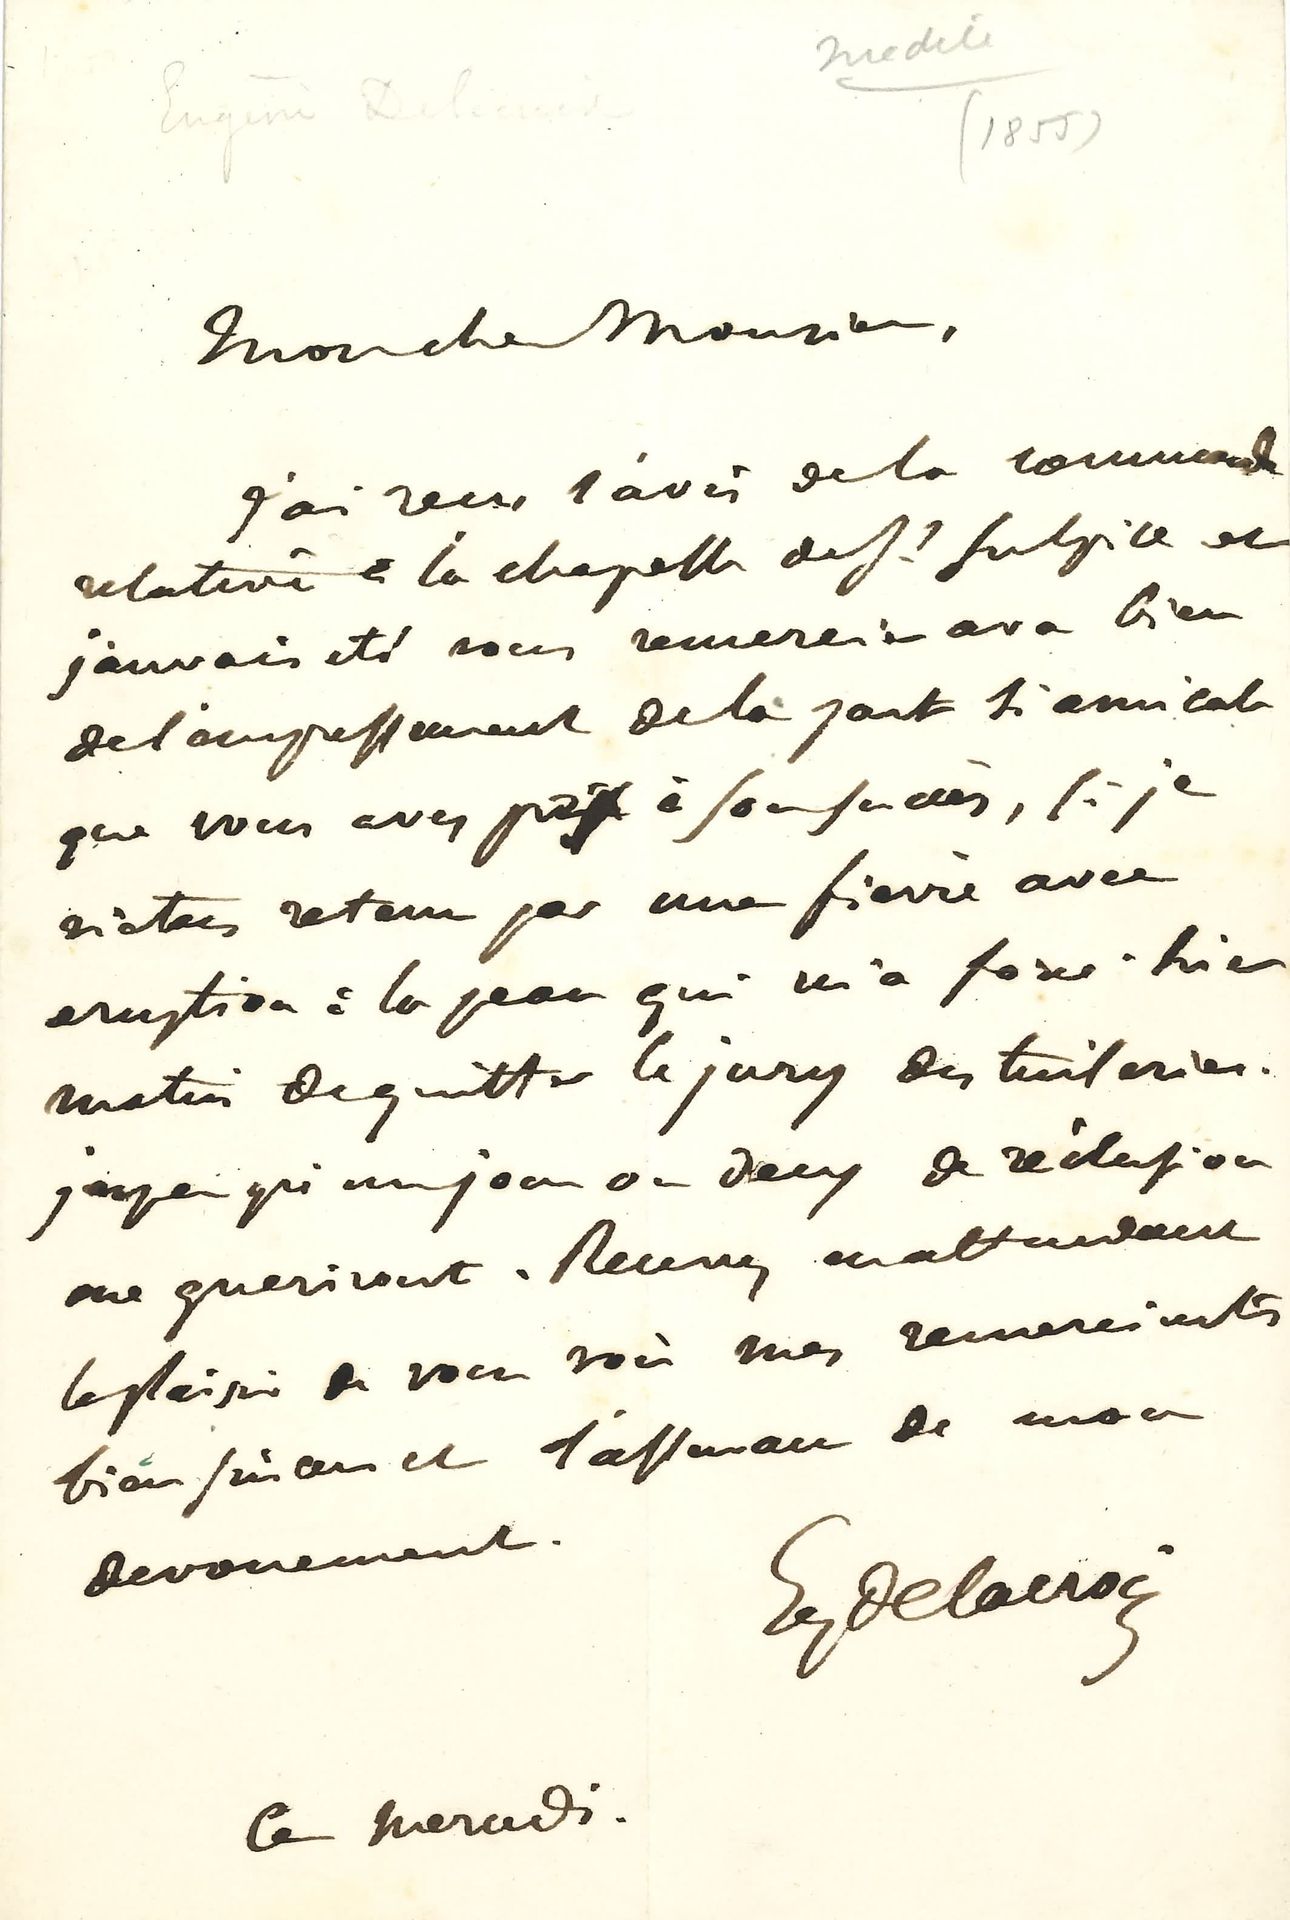 Inedite
Eugène Delacroix
(1855)
Mon cher Monsieur,
J'ai recu l'avis de la commande
relative à la chapelle de St Sulpice et
j'aurais été vous remercier avec bien
de l'empressement de la part si amicale
que vous avez prise à son succès, si je
n'etais retenu par une fievre avec
eruption à la peau qui m'a forcé hier
matin de quitter le jury des tuileries.
j'espere qu'un jour ou deux de réclusion
me gueriront. Recevez en attendant
le plaisir de vous voir mes remerciements
bien sinceres et l'assurance de mon
devouement.
Eug Delacroix
Ce mercredi.